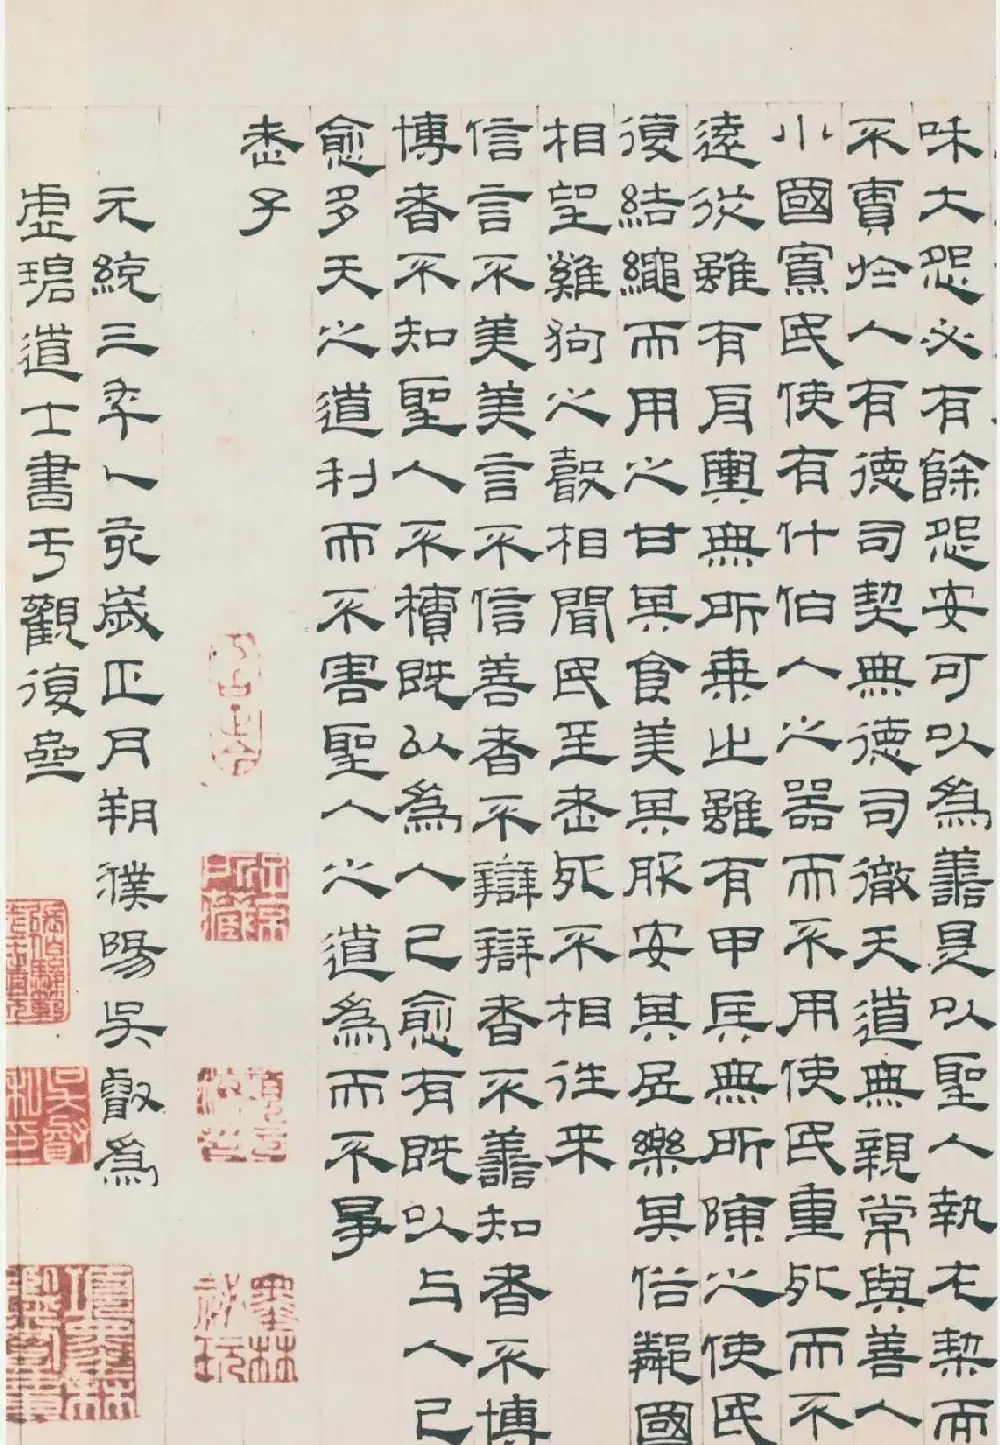 味大怨必有餘怨安可以為善是以聖人執左契而
不責於人有德司契無德司徹天道無親常與善人
小國寡民使有什伯人之器而不用使民重死而不
遠從雖有舟輿無所乗之雖有甲兵無所陳之使民
復結繩而用之甘其食美其服安其居樂其俗鄰國
相望雞狗之聲相聞民至老死不相往来
信言不美美言不信善者不辯辯者不善知者不博
博者不知聖人不積既以為人己愈有既以与人己
愈多天之道利而不害聖人之道為而不爭
老子
元統三年乙亥歲正月朔濮陽吳叡為
虛碧道士書于觀復
墨林
祕玩
項墨林
鑑賞章